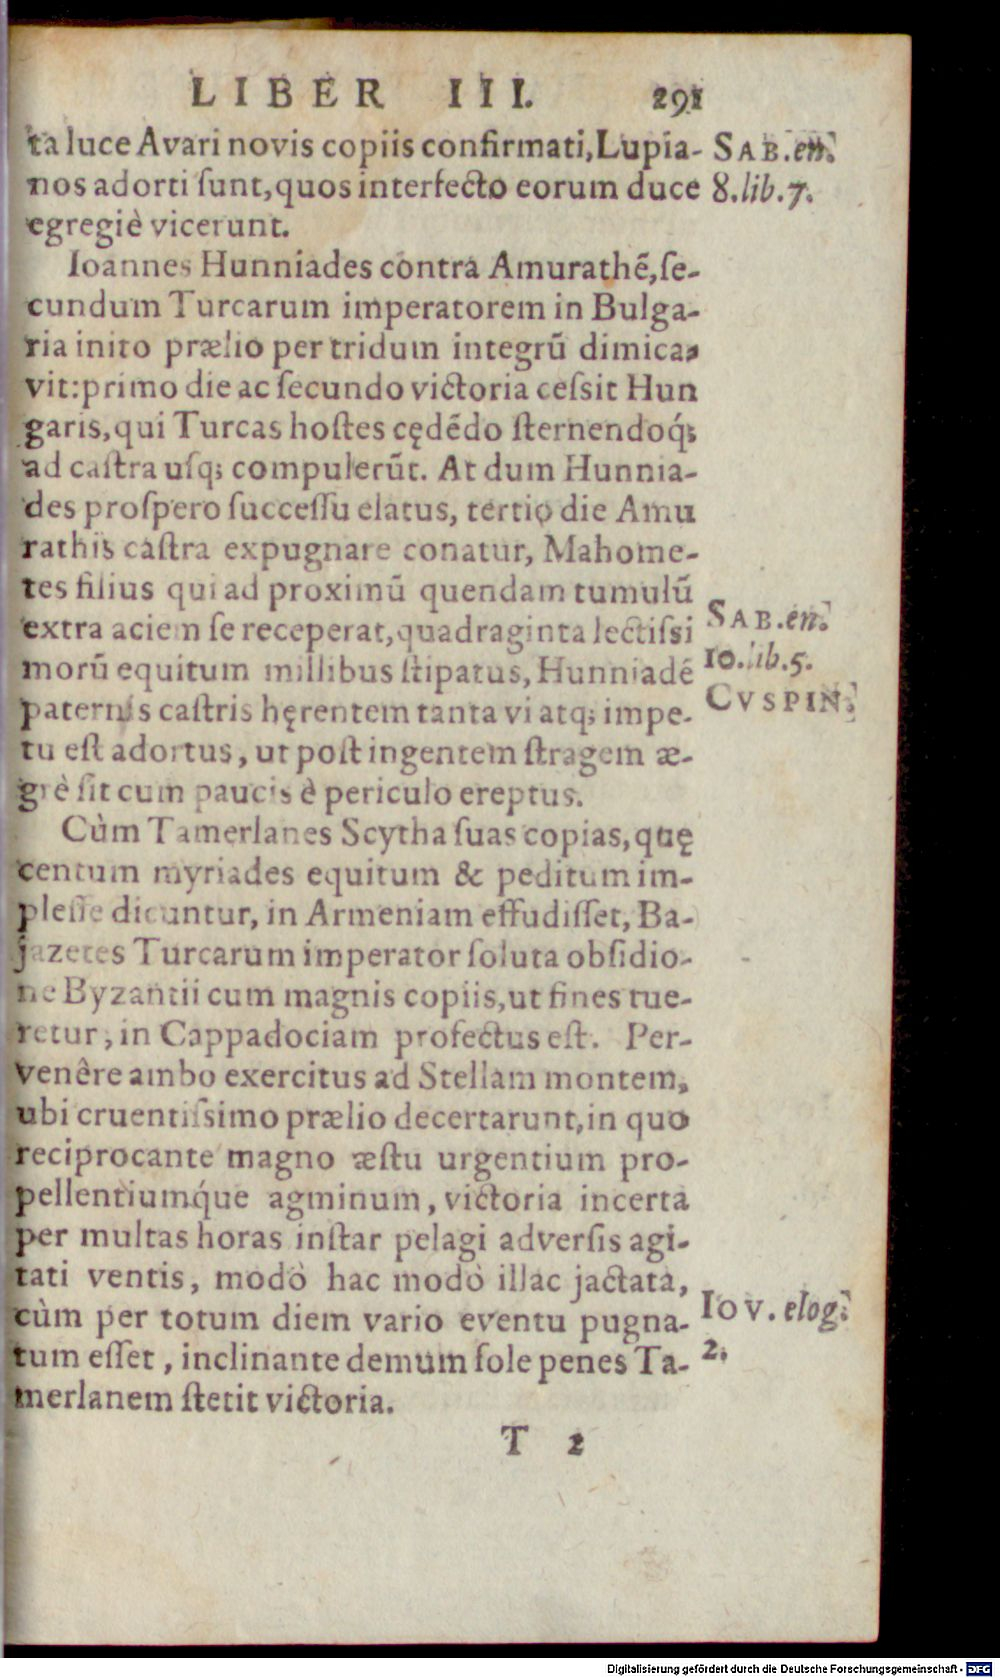 LIBER III. 291
ta luce Avari novis copiis confirmati, Lupia- SAB. en.
nos adorti ſunt, quos interfecto eorum duce 8. lib. 7.
egregiè vicerunt.
Ioannes Hunniades contra Amurathẽ, ſe-
cundum Turcarum imperatorem in Bulga-
ria inito prælio per tridum integrũ dimica-
vit: primo die ac ſecundo victoria ceſsit Hun
garis, qui Turcas hoſtes cędẽdo ſternendoq́;
ad caſtra uſq; compulerũt. At dum Hunnia-
des proſpero ſucceſſu elatus, tertio die Amu
rathis caſtra expugnare conatur, Mahome-
tes filius qui ad proximũ quendam tumulũ
extra aciem ſe receperat, quadraginta lectiſsi SAB. en.
morũ equitum millibus ſtipatus, Hunniadẽ 10. lib. 5.
paternis caſtris hęrentem tanta vi atq; impe- CVSPIN.
tu eſt adortus, ut poſt ingentem ſtragem æ-
grè ſit cum paucis è periculo ereptus.
Cùm Tamerlanes Scytha ſuas copias, quę
centum myriades equitum & peditum im-
pleſſe dicuntur, in Armeniam effudiſſet, Ba-
jazetes Turcarum imperator ſoluta obſidio-
ne Byzantii cum magnis copiis, ut fines tue-
retur, in Cappadociam profectus eſt. Per-
venêre ambo exercitus ad Stellam montem,
ubi cruentiſsimo prælio decertarunt, in quo
reciprocante magno æſtu urgentium pro-
pellentiumq́ue agminum, victoria incerta
per multas horas inſtar pelagi adverſis agi-
tati ventis, modò hac modò illac jactata,
cùm per totum diem vario eventu pugna- IOV. elog.
tum eſſet, inclinante demum ſole penes Ta- 2.
merlanem ſtetit victoria.
T 2
Digitalisierung gefördert durch die Deutsche Forschungsgemeinschaft - DFG